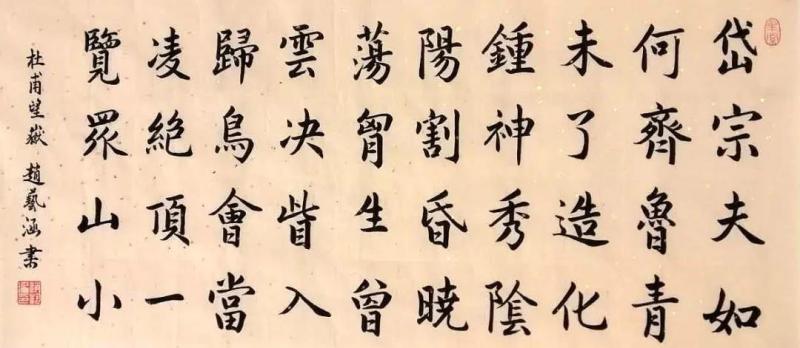 岱宗夫如
何齊魯青
未了造化
鍾神秀陰
陽割昏曉
蕩胷生曾
雲决眥入
歸鳥會當
凌絕頂一
覽眾山小
杜甫望嶽 趙藝涵書